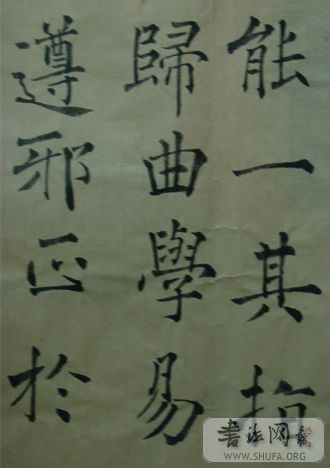 能一其指
歸曲學易
遵邪正於
書法网
WWW.SHUFA.ORG